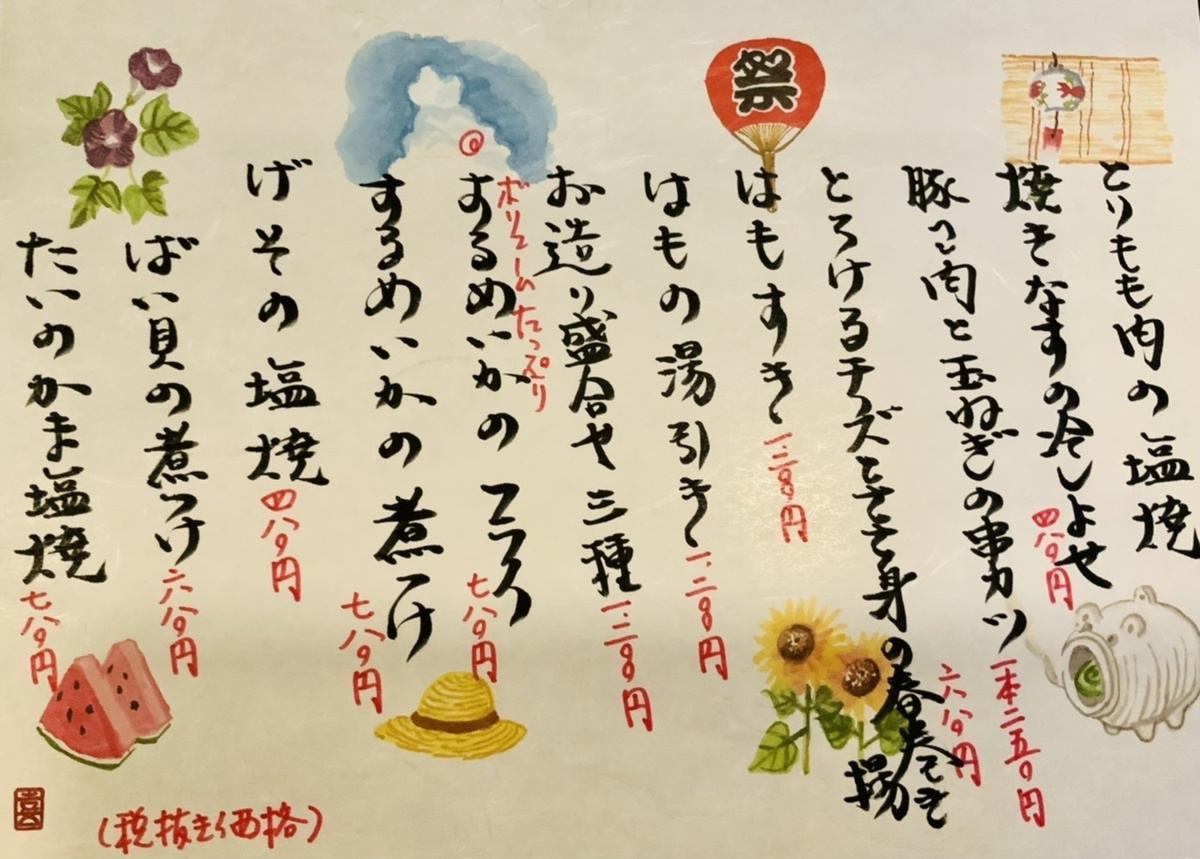 祭
とりもも肉の塩焼
焼きなすの冷しよせ 四八〇円
豚 肉と玉ねぎの串カツ 一本二五〇円
とろけるチーズとささ身の春巻 揚 六八〇円
はもすき 一.三〇〇円
はもの湯引き 一.二〇〇円
お造り盛合せ 三種 一.三〇〇円
ボリュームたっぷり
するめいかの 七八〇円
するめいかの煮つけ 七八〇円
げその塩焼 四八〇円
ばい貝の煮つけ 六八〇円
たいのかま塩焼 七八〇円
(税抜き価格)